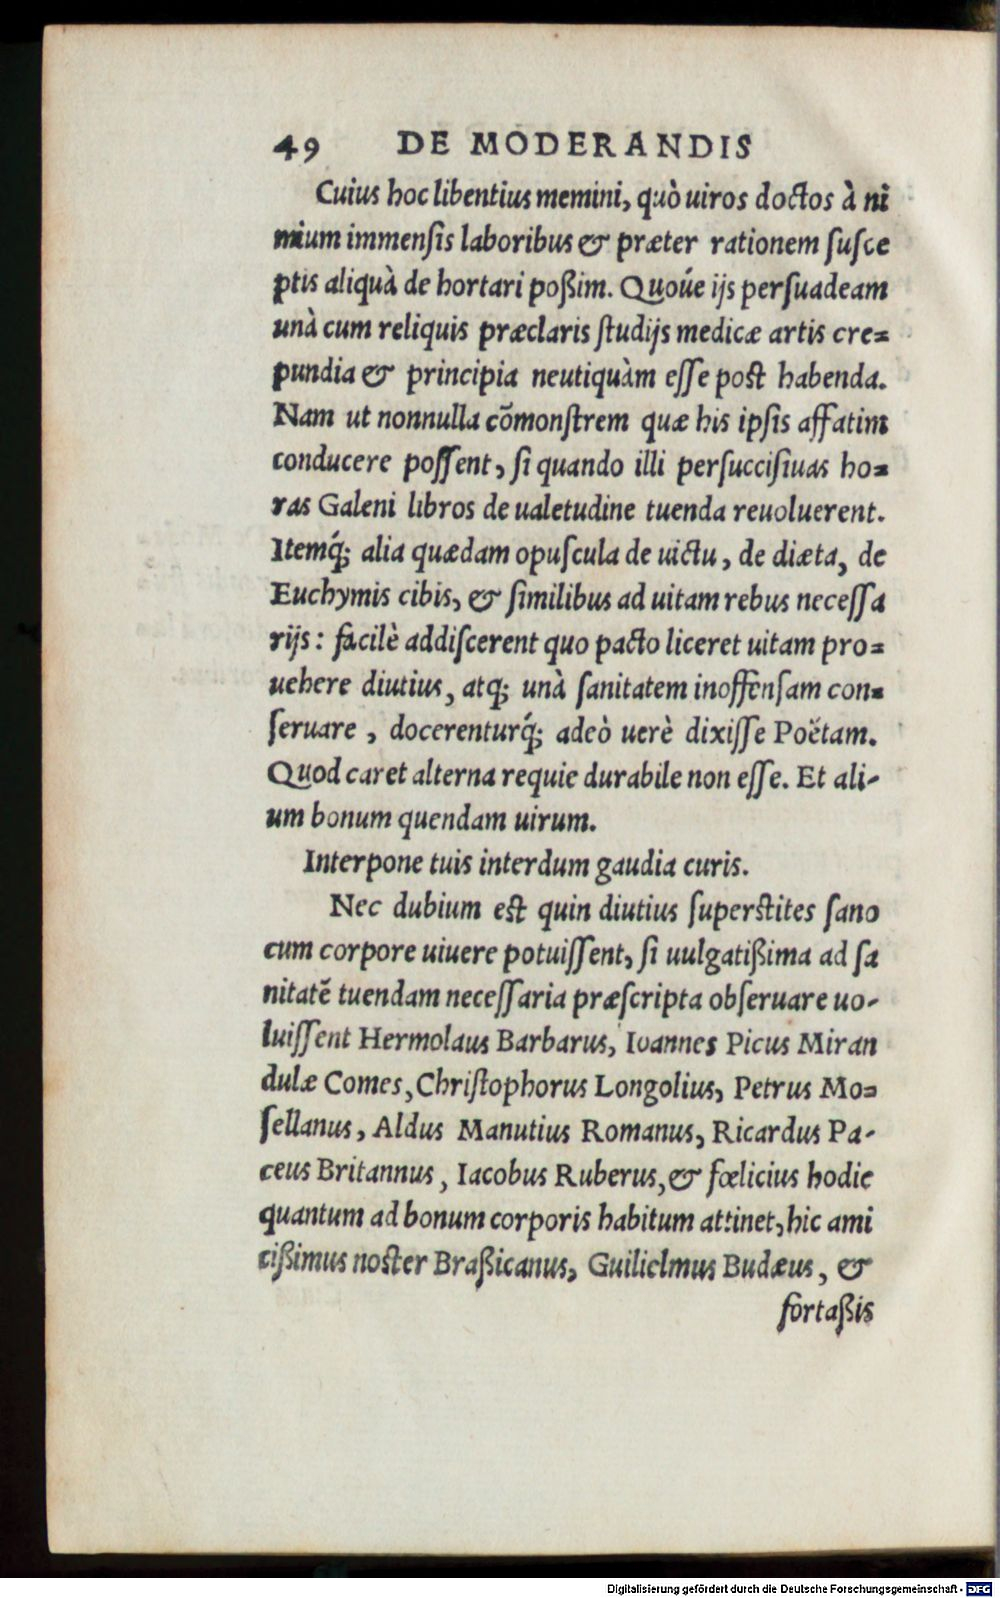 49 DE MODERANDIS
Cuius hoc libentius memini, quò uiros doctos à ni
mium immenſis laboribus & præter rationem ſuſce
ptis aliquà de hortari poßim. Quoúe ijs perſuadeam
unà cum reliquis præclaris ſtudijs medicæ artis cre⸗
pundia & principia neutiquàm eſſe post habenda.
Nam ut nonnulla cõmonſtrem quæ his ipſis affatim
conducere poſſent, ſi quando illi perſucciſiuas ho⸗
ras Galeni libros de ualetudine tuenda reuoluerent.
Itemq́; alia quædam opuſcula de uictu, de diæta, de
Euchymis cibis, & ſimilibus ad uitam rebus neceſſa
rijs: facilè addiſcerent quo pacto liceret uitam pro⸗
uehere diutius, atq; unà ſanitatem inoffenſam con⸗
ſeruare, docerenturq́; adeò uerè dixiſſe Poëtam.
Quod caret alterna requie durabile non eſſe. Et ali-
um bonum quendam uirum.
Interpone tuis interdum gaudia curis.
Nec dubium est quin diutius ſuperstites ſano
cum corpore uiuere potuiſſent, ſi uulgatißima ad ſa
nitatẽ tuendam neceſſaria præſcripta obſeruare uo-
luiſſent Hermolaus Barbarus, Ioannes Picus Miran
dulæ Comes, Chriſtophorus Longolius, Petrus Mo⸗
ſellanus, Aldus Manutius Romanus, Ricardus Pa-
ceus Britannus, Iacobus Ruberus, & fœlicius hodie
quantum ad bonum corporis habitum attinet, hic ami
cißimus noster Braßicanus, Guilielmus Budæus, &
fortaßis
Digitalisierung gefördert durch die Deutsche Forschungsgemeinschaft - DFG